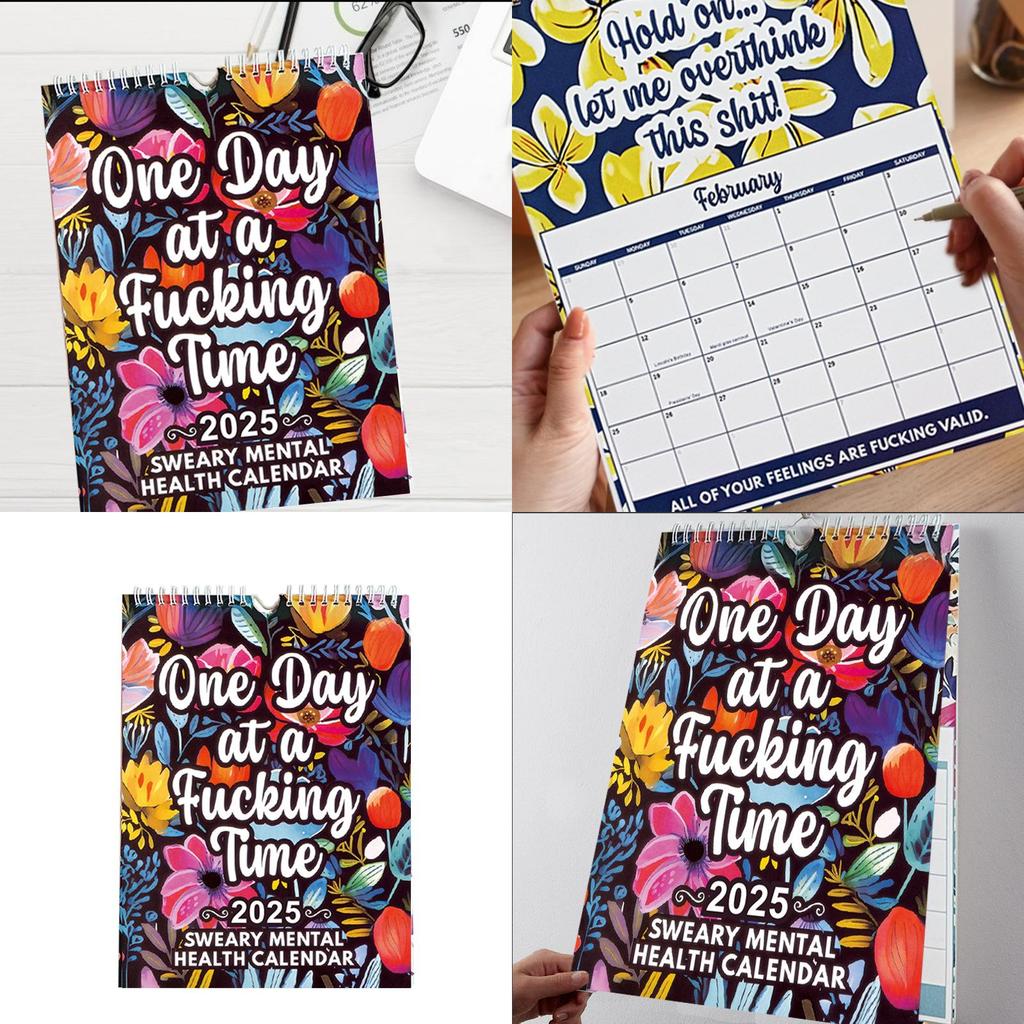 62%
550
One Day
at a
Fucking
Time
2025
SWEARY MENTAL
HEALTH CALENDAR
Hold on...
let me overthink
this shit!
February
SUNDAY MONDAY TUESDAY WEDNESDAY THURSDAY FRIDAY SATURDAY
1 2 3
5 6 7 8 9 10
12 13 14 15 16 17
Lincoln's Birthday
Valentine's Day
18 19 20 21 22 23 24
Presidents' Day
25 26 27 28 29
ALL OF YOUR FEELINGS ARE FUCKING VALID.
One Day
at a
Fucking
Time
2025
SWEARY MENTAL
HEALTH CALENDAR
One Day
at a
Fucking
Time
2025
SWEARY MENTAL
HEALTH CALENDAR